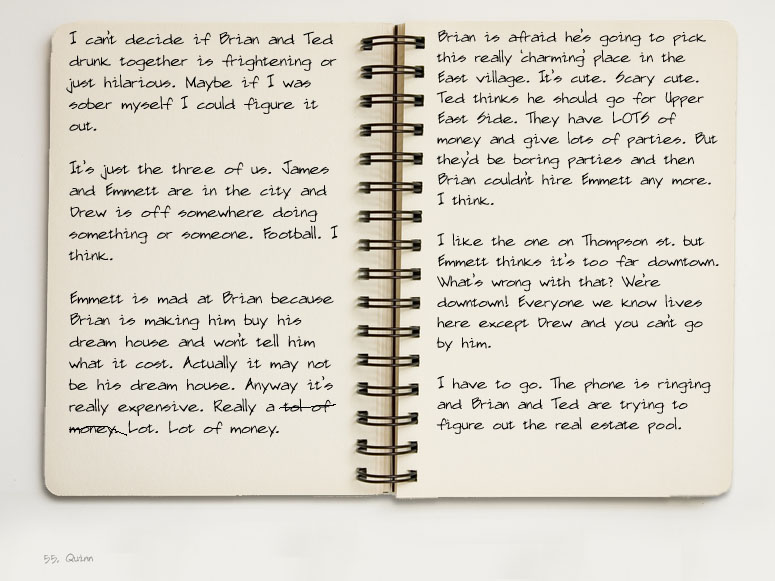 I can't decide if Brian and Ted
drunk together is frightening or
just hilarious. Maybe if I was
sober myself I could figure it
out.
It's just the three of us. James
and Emmett are in the city and
Drew is off somewhere doing
something or someone. Football. I
think.
Emmett is mad at Brian because
Brian is making him buy his
dream house and won't tell him
what it cost. Actually it may not
be his dream house. Anyway it's
really expensive. Really a tol of
money. Lot. Lot of money.
Brian is afraid he's going to pick
this really 'charming' place in the
East village. It's cute. Scary cute.
Ted thinks he should go for Upper
East Side. They have LOTS of
money and give lots of parties. But
they'd be boring parties and then
Brian couldn't hire Emmett any more.
I think.
I like the one on Thompson st. but
Emmett thinks it's too far downtown.
What's wrong with that? We're
downtown! Everyone we know lives
here except Drew and you can't go
by him.
I have to go. The phone is ringing
and Brian and Ted are trying to
figure out the real estate pool.
55. Quinn